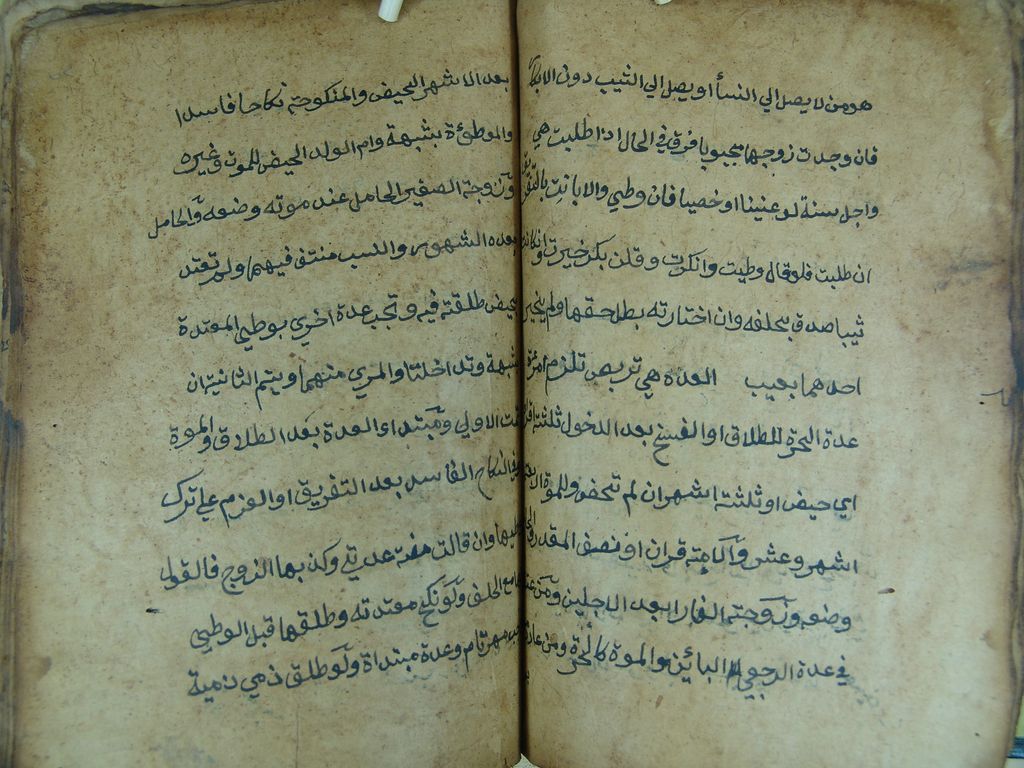 هو من لا يصل الي النسأ او يصل الي الثيب دون الابكا
فان وجدت زوجها مجبوبا فرق في الحال اذا طلبت هي
واجل سنة لو عنينا او خصيا فان وطي والا بانت بالتفريق
ان طلبت فلو قال وطيت وانكرت وقلن بكر خيرت وان كانت
ثيبا صدق بحلفه وان اختارته بطل حقها ولم يخير
احدهما بعيب العده هي تربص تلزم امرأة
عدة الحرة للطلاق او الفسخ بعد الدخول ثلثة اقرا
اي حيض او ثلثة اشهر ان لم تحض وللموة اربعة
اشهر وعشر وللامة قران او نصف المقدر
وضعه وزوجة الفار ابعد الاجلين ومن عتقت
في عدة الرجعي لا البائن والموة كالحرة ومن عاد
بعد الاشهر الحيض والمنكوحة نكاحا فاسدا
والموطئة بشبهة وام الولد الحيض للموت وغيره
وزوجة الصغير الحامل عند موته وضعه والحامل
بعده الشهور والنسب منتف فيهما ولم تعتد
بحيض طلقت فيه وتجب عدة اخري بوطي المعتدة
بشبهة وتداخلتا والمري منهما ويتم الثانية ان
تمت الاولي ومبتداء العدة بعد الطلاق والموة
وفي النكاح الفاسد بعد التفريق او العزم علي ترك
وطيها وان قالت مضت عدتي وكذبها الزوج فالقول
مع الحلف ولو نكح معتدته وطلقها قبل الوطي
يجب مهر تام وعدة مبتداة ولو طلق ذمي ذمية